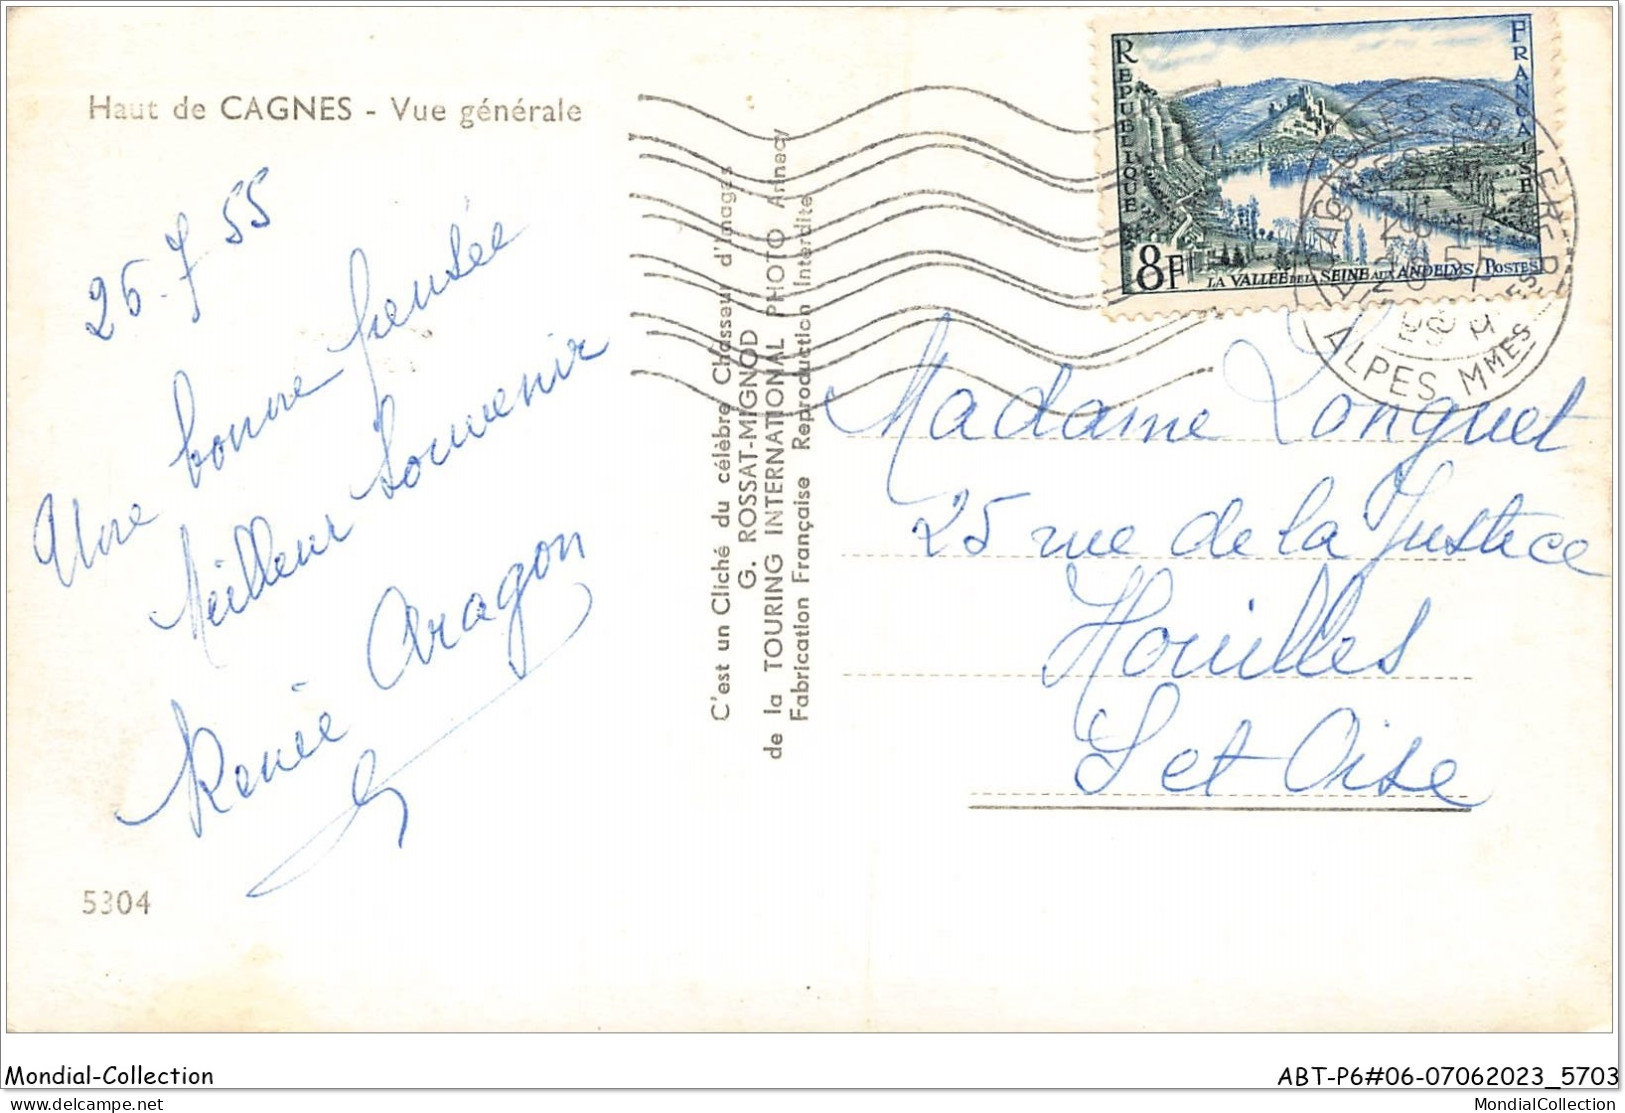 Haut de CAGNES - Vue générale
26-7 55
Une bonne pensée
Meilleur Souvenir
Renée Aragon
5304
C'est un Cliché du célèbre Chasseur d'images
G. ROSSAT-MIGNOD
de la TOURING INTERNATIONAL PHOTO Annecy
Fabrication Française Reproduction Interdite
REPUBLIQUE FRANCAISE
8F
LA VALLÉE DE LA SEINE AUX ANDELYS POSTES
SUR MER
ALPES MMES
Madame Longuet
25 rue de la Justice
Houilles
S et Oise
Mondial-Collection
ABT-P6#06-07062023_5703
delcampe.net
MondialCollection